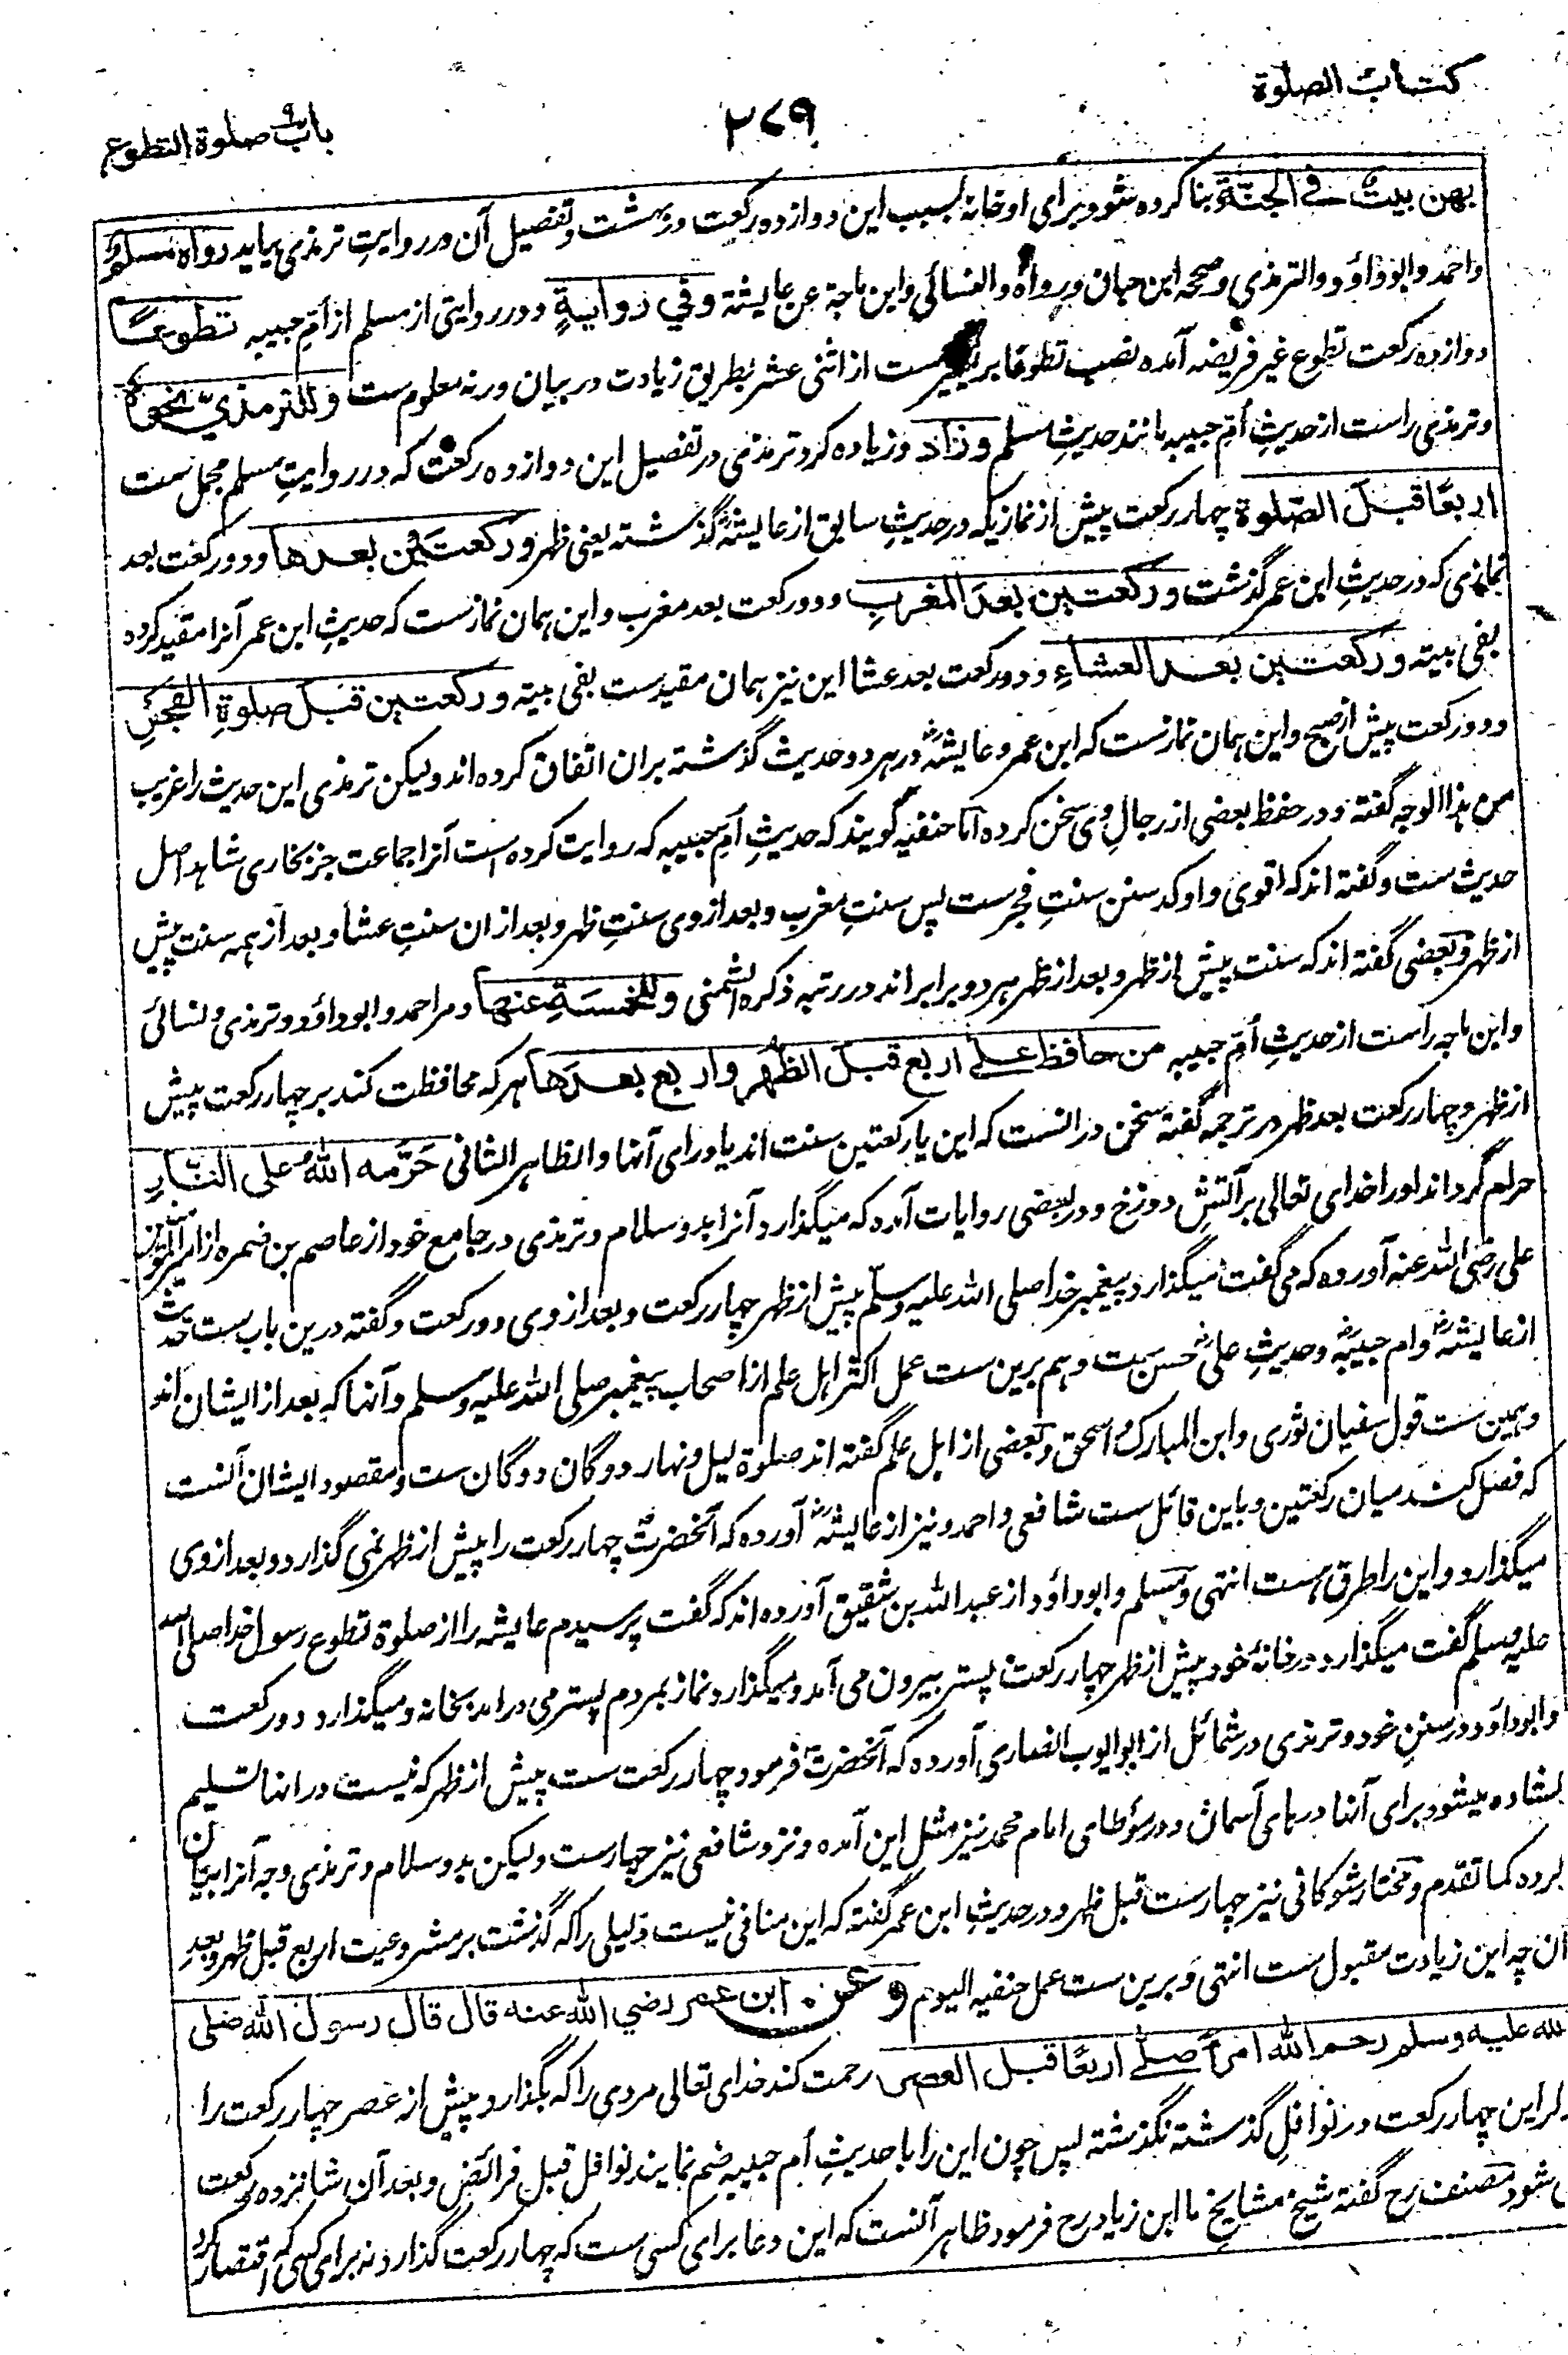 كتاب الصلوة
۲۷۹
باب صلوة التطوع
بهن بيت في الجنة بنا کرده شود برای او خانهٔ بسبب این دوازده رکعت در بهشت و تفصیل آن در روایتِ ترمذی بیاید رواه مسلم
واحمد وابو داؤد والترمذي وصححه ابن حبان ورواه والنسائي وابن ماجة عن عايشة وفي رواية ودر روایتی از مسلم از اُمِّ حبیبه تطوعًا
دوازده رکعت تطوع غیر فریضه آمده نصب تطوعًا بر تمییز ست از اثنی عشر بطریق زیادت در بیان ورنه معلوم ست وللترمذي نحوه
وترمذی راست از حدیثِ اُمِّ حبیبه مانند حدیثِ مسلم وزاد وزیاده کرد ترمذی در تفصیل این دوازده رکعت که در روایتِ مسلم مجمل ست
اربعًا قبل الصلوة چهار رکعت پیش از نمازیکه در حدیثِ سابق از عایشه گذشته یعنی ظهر وركعتين بعدها ودو رکعت بعد
نمازی که در حدیثِ ابن عمر گذشت وركعتين بعد المغربِ ودو رکعت بعد مغرب واین همان نمازست که حدیثِ ابن عمر آنرا مقید کرده
بفی بیته وركعتين بعد العشاءِ ودو رکعت بعد عشا این نیز همان مقیدست بفی بیته وركعتين قبل صلوةِ الفجرِ
ودو رکعت پیش از صبح واین همان نمازست که ابن عمر وعایشهؓ در هر دو حدیث گذشته بران اتفاق کرده‌اند ولیکن ترمذی این حدیث را غریب
من هذا الوجه گفته ودر حفظ بعضی از رجالِ وی سخن کرده امّا حنفیه گویند که حدیثِ اُمِّ حبیبه که روایت کرده است آنرا جماعت جز بخاری شاهد اصل
حدیث ست وگفته‌اند که اقوی واوکد سنن سنتِ فجرست پس سنتِ مغرب وبعد ازوی سنتِ ظهر وبعد ازان سنتِ عشا وبعد از همه سنت پیش
از ظهر وبعضی گفته‌اند که سنت پیش از ظهر وبعد از ظهر هر دو برابراند در رتبه ذکره الشمنی وللخمسة عنها ومر احمد وابو داؤد وترمذی ونسائی
وابن ماجه راست از حدیثِ اُمِّ حبیبه من حافظ على اربع قبل الظهر واربع بعدها هر که محافظت کند بر چهار رکعت پیش
از ظهر وچهار رکعت بعد ظهر در ترجمه گفته سخن درانست که این با رکعتین سنت اند یا ورای آنها والظاهر الثانی حرّمه الله على النارِ
حرام گرداند او را خدای تعالی بر آتشِ دوزخ ودر بعضی روایات آمده که میگذارد آنرا بدو سلام وترمذی در جامع خود از عاصم بن ضمره از امیر المؤمنین
علی رضی الله عنه آورده که می گفت میگذارد پیغمبر خدا صلی الله علیه وسلّم پیش از ظهر چهار رکعت وبعد ازوی دو رکعت وگفته درین باب ست حدیث
از عایشهؓ وام حبیبهؓ وحدیثِ علیؓ حسن ست وهم برین ست عمل اکثر اهل علم از اصحاب پیغمبر صلی الله علیه وسلم وآنها که بعد از ایشان اند
وهمین ست قول سفیان ثوری وابن المبارک واسحق وبعضی از اهل علم گفته‌اند صلوة لیل ونهار دوگان دوگان ست ومقصود ایشان آنست
که فصل کنند میان رکعتین وباین قائل ست شافعی واحمد ونیز از عایشهؓ آورده که آنحضرت چهار رکعت را پیش از ظهر نمی گذارد وبعد ازوی
میگذارد واین را طرق هست انتهی ومسلم وابو داؤد از عبدالله بن شقیق آورده‌اند که گفت پرسیدم عایشه را از صلوة تطوع رسول خدا صلی الله
علیه وسلم گفت میگذارد در خانهٔ خود پیش از ظهر چهار رکعت پستر بیرون می آمد ومیگذارد نماز بمردم پستر می درامد بخانه ومیگذارد دو رکعت
وابو داؤد در سنن خود وترمذی در شمائل از ابو ایوب انصاری آورده که آنحضرت فرمود چهار رکعت ست پیش از ظهر که نیست در انها تسلیم
کشاده میشود برای آنها درهای آسمان ودر مؤطای امام محمد نیز مثل این آمده ونزد شافعی نیز چهارست ولیکن بدو سلام وترمذی وجه آنرا بیان
کرده کما تقدم ومختار شوکانی نیز چهارست قبل ظهر ودر حدیثِ ابن عمر گفته که این منافی نیست دلیلی را که گذشت بر مشروعیت اربع قبل ظهر وبعدِ
ان چه این زیادت مقبول ست انتهی وبرین ست عمل حنفیه الیوم وعن ابن عمر رضي الله عنه قال قال رسول الله صلى
الله عليه وسلم رحم الله امرأ صلى اربعًا قبل العصر رحمت کند خدای تعالی مردی را که بگذارد پیش از عصر چهار رکعت را
ذکر این چهار رکعت در نوافلِ گذشته نگذشته پس چون این را با حدیثِ اُمِّ حبیبه ضم نمایند نوافل قبل فرائض وبعد آن شانزده رکعت
می شود مصنف رح گفته شیخ مشایخ ما ابن زیاد رح فرمود ظاهر آنست که این دعا برای کسی ست که چهار رکعت گذارد نه برای کسی که اقتصار کرد